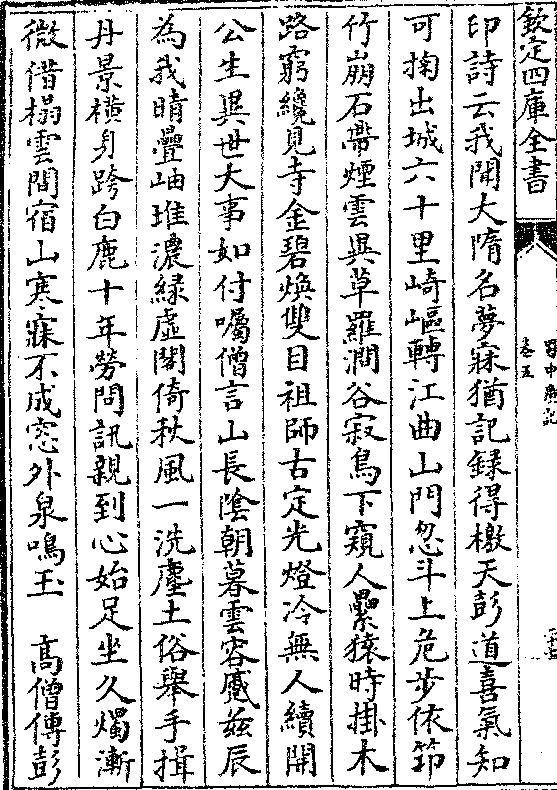 欽定四庫全書
蜀中廣記
卷五
印詩云我聞大隋名夢寐猶記録得檄天彭道喜氣知
可掬出城六十里崎嶇轉江曲山門忽斗上危步依笻
竹崩石帶煙雲異草羅澗谷寂鳥下窺人纍猿時掛木
路窮纔見寺金碧煥雙目祖師古定光燈冷無人續開
公生異世大事如付囑僧言山長陰朝暮雲容蹙兹辰
為我晴疊岫堆濃緑虚閣倚秋風一洗塵土俗舉手揖
丹景横身跨白鹿十年勞問訊親到心始足坐久燭漸
微借榻雲間宿山寒寐不成窓外泉鳴玉　高僧傳彭